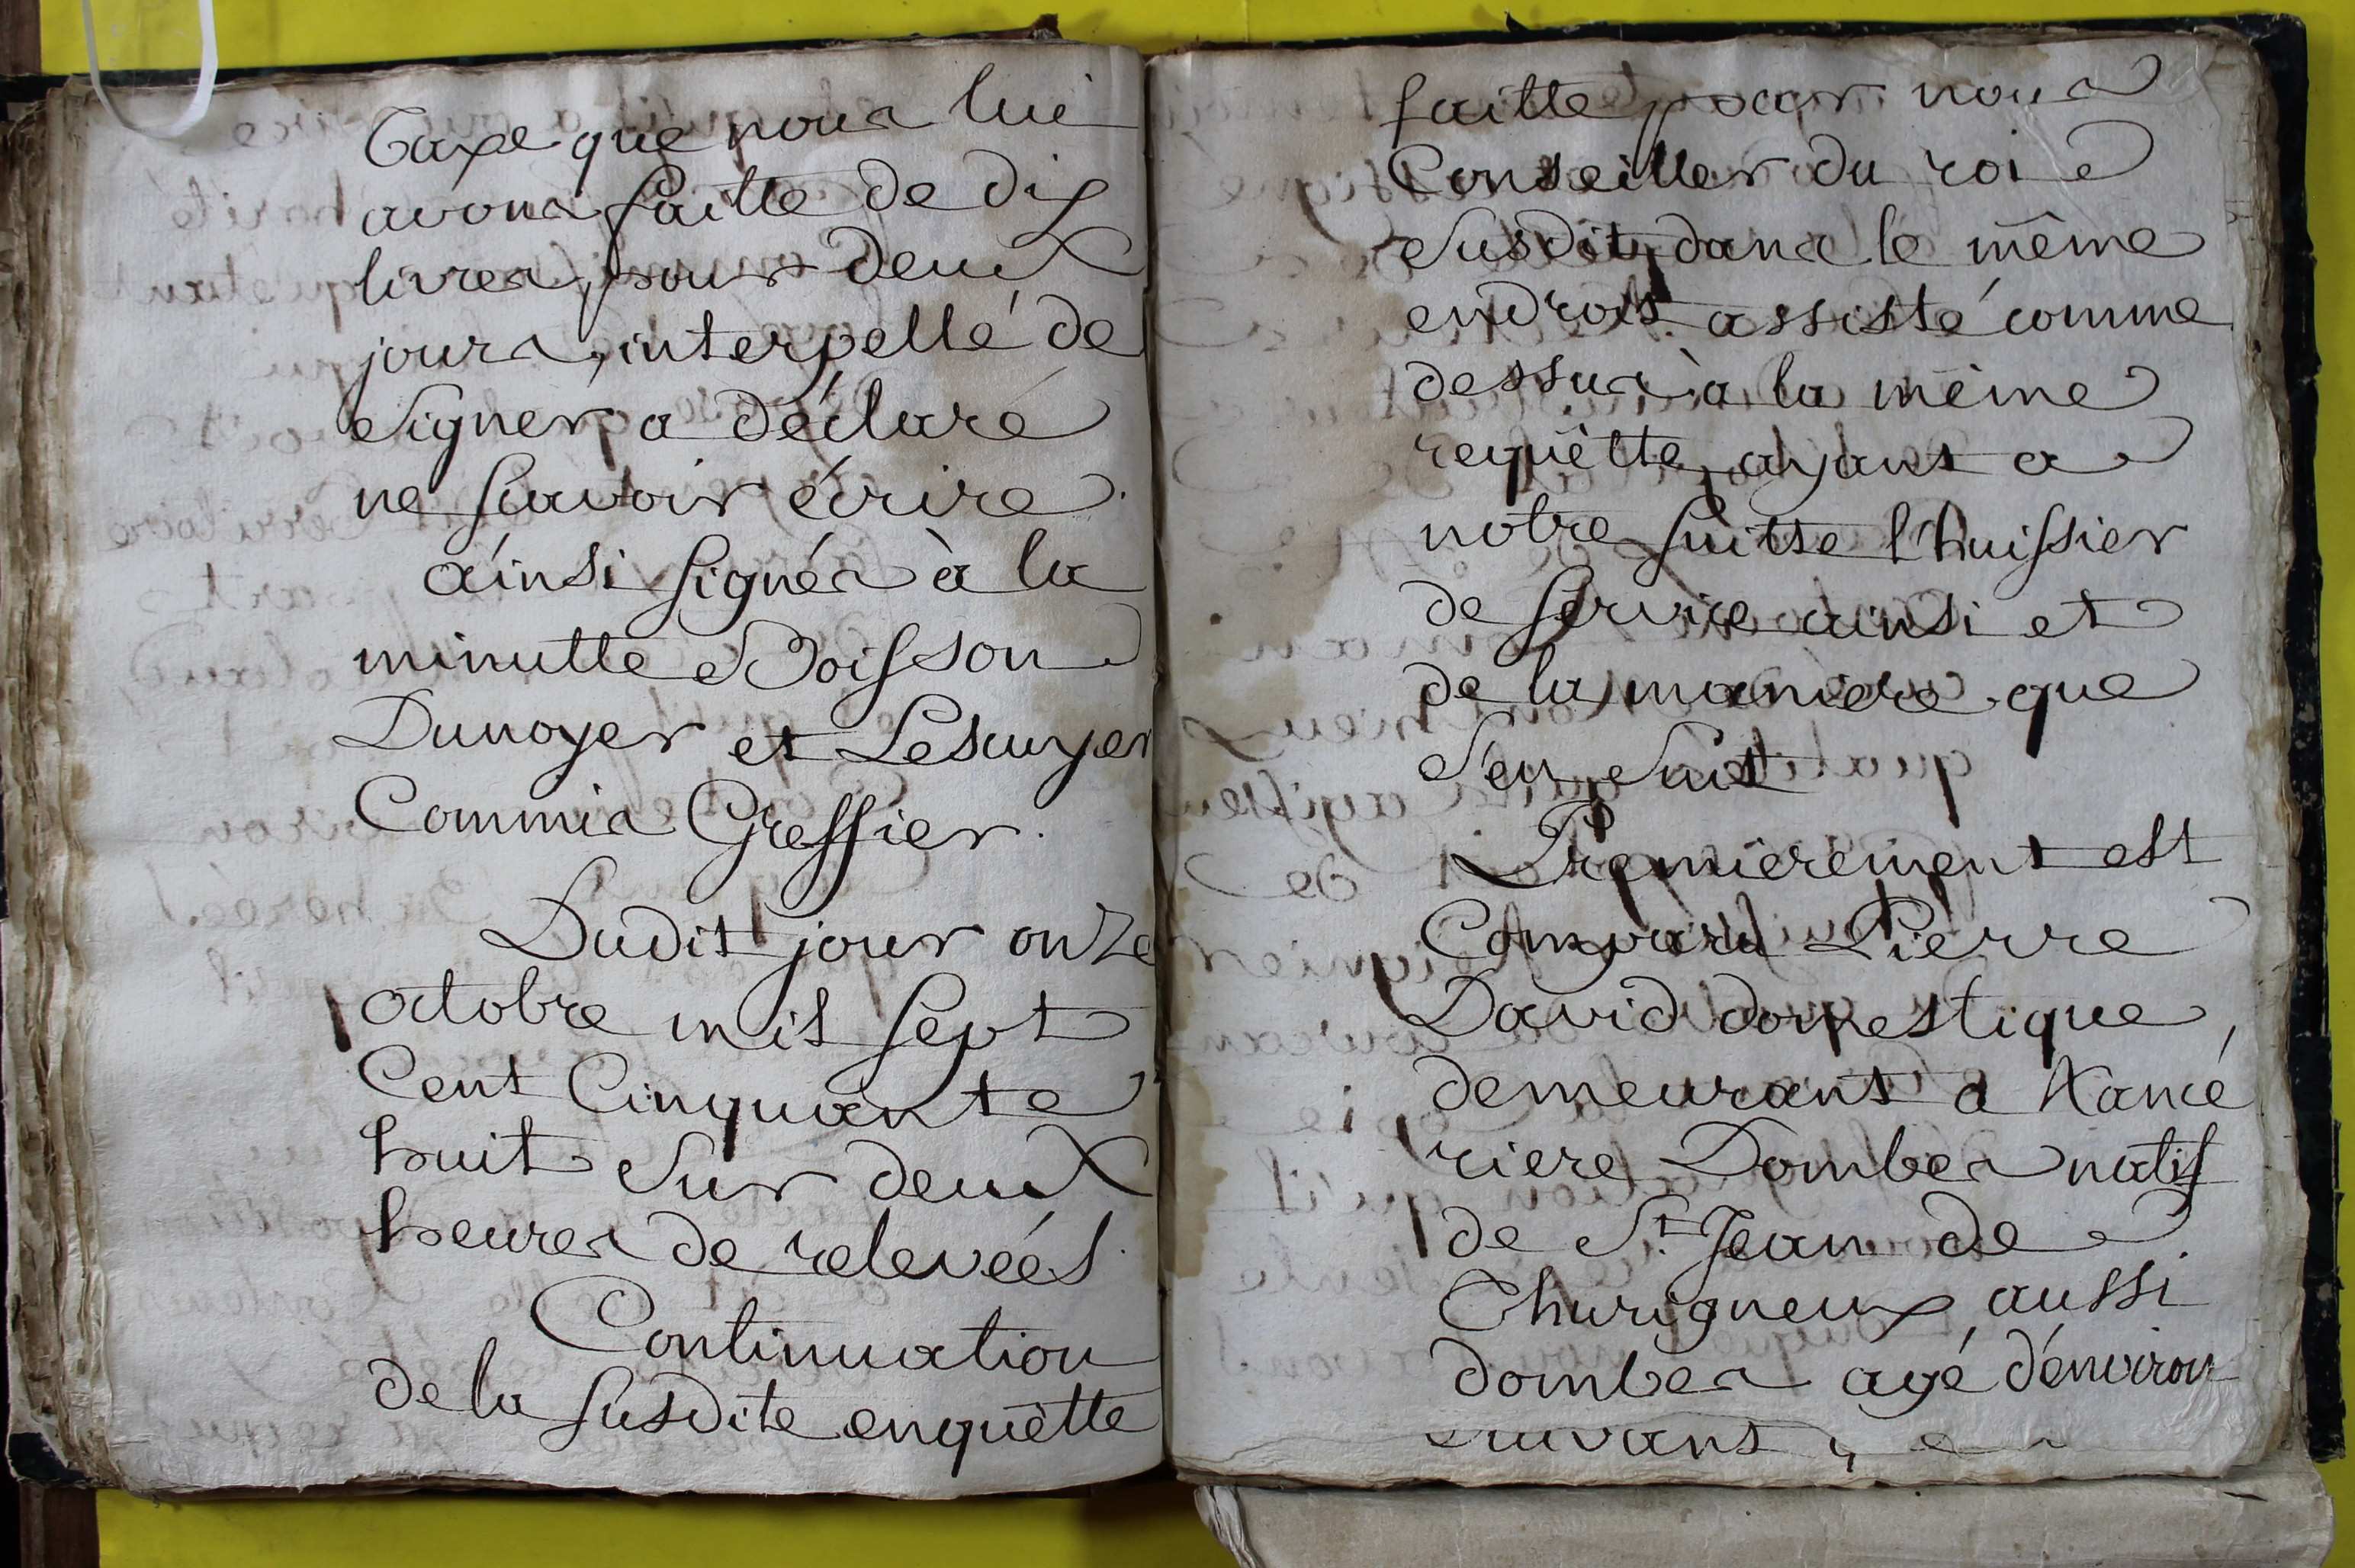 Taxe que nous lui
avons faitte de dix
livres, pour deux
jours, interpellé de
signer, a déclaré
ne scavoir écrire.
ainsi signés à la
minutte Boisson
Dunoyer et Lesuyer
Commis Greffier.
Dudit jour onze
octobre mil sept
Cent Cinquante
huit sur deux
heures de relevéés.
Continuation
de la susdite enquêtte
faitte par nous
Conseiller du roi
susdit, dans le même
endroit assisté comme
dessus à la même
requêtte, ayant a
notre suitte l'huissier
de service ainsi et
de la maniere que
s'en suit
Premierement est
Comparu Pierre
David domestique,
demeurant a
riere Dombes natif
de St. Jean de
Thurigneux, aussi
dombes agé d'énviron
suivant,